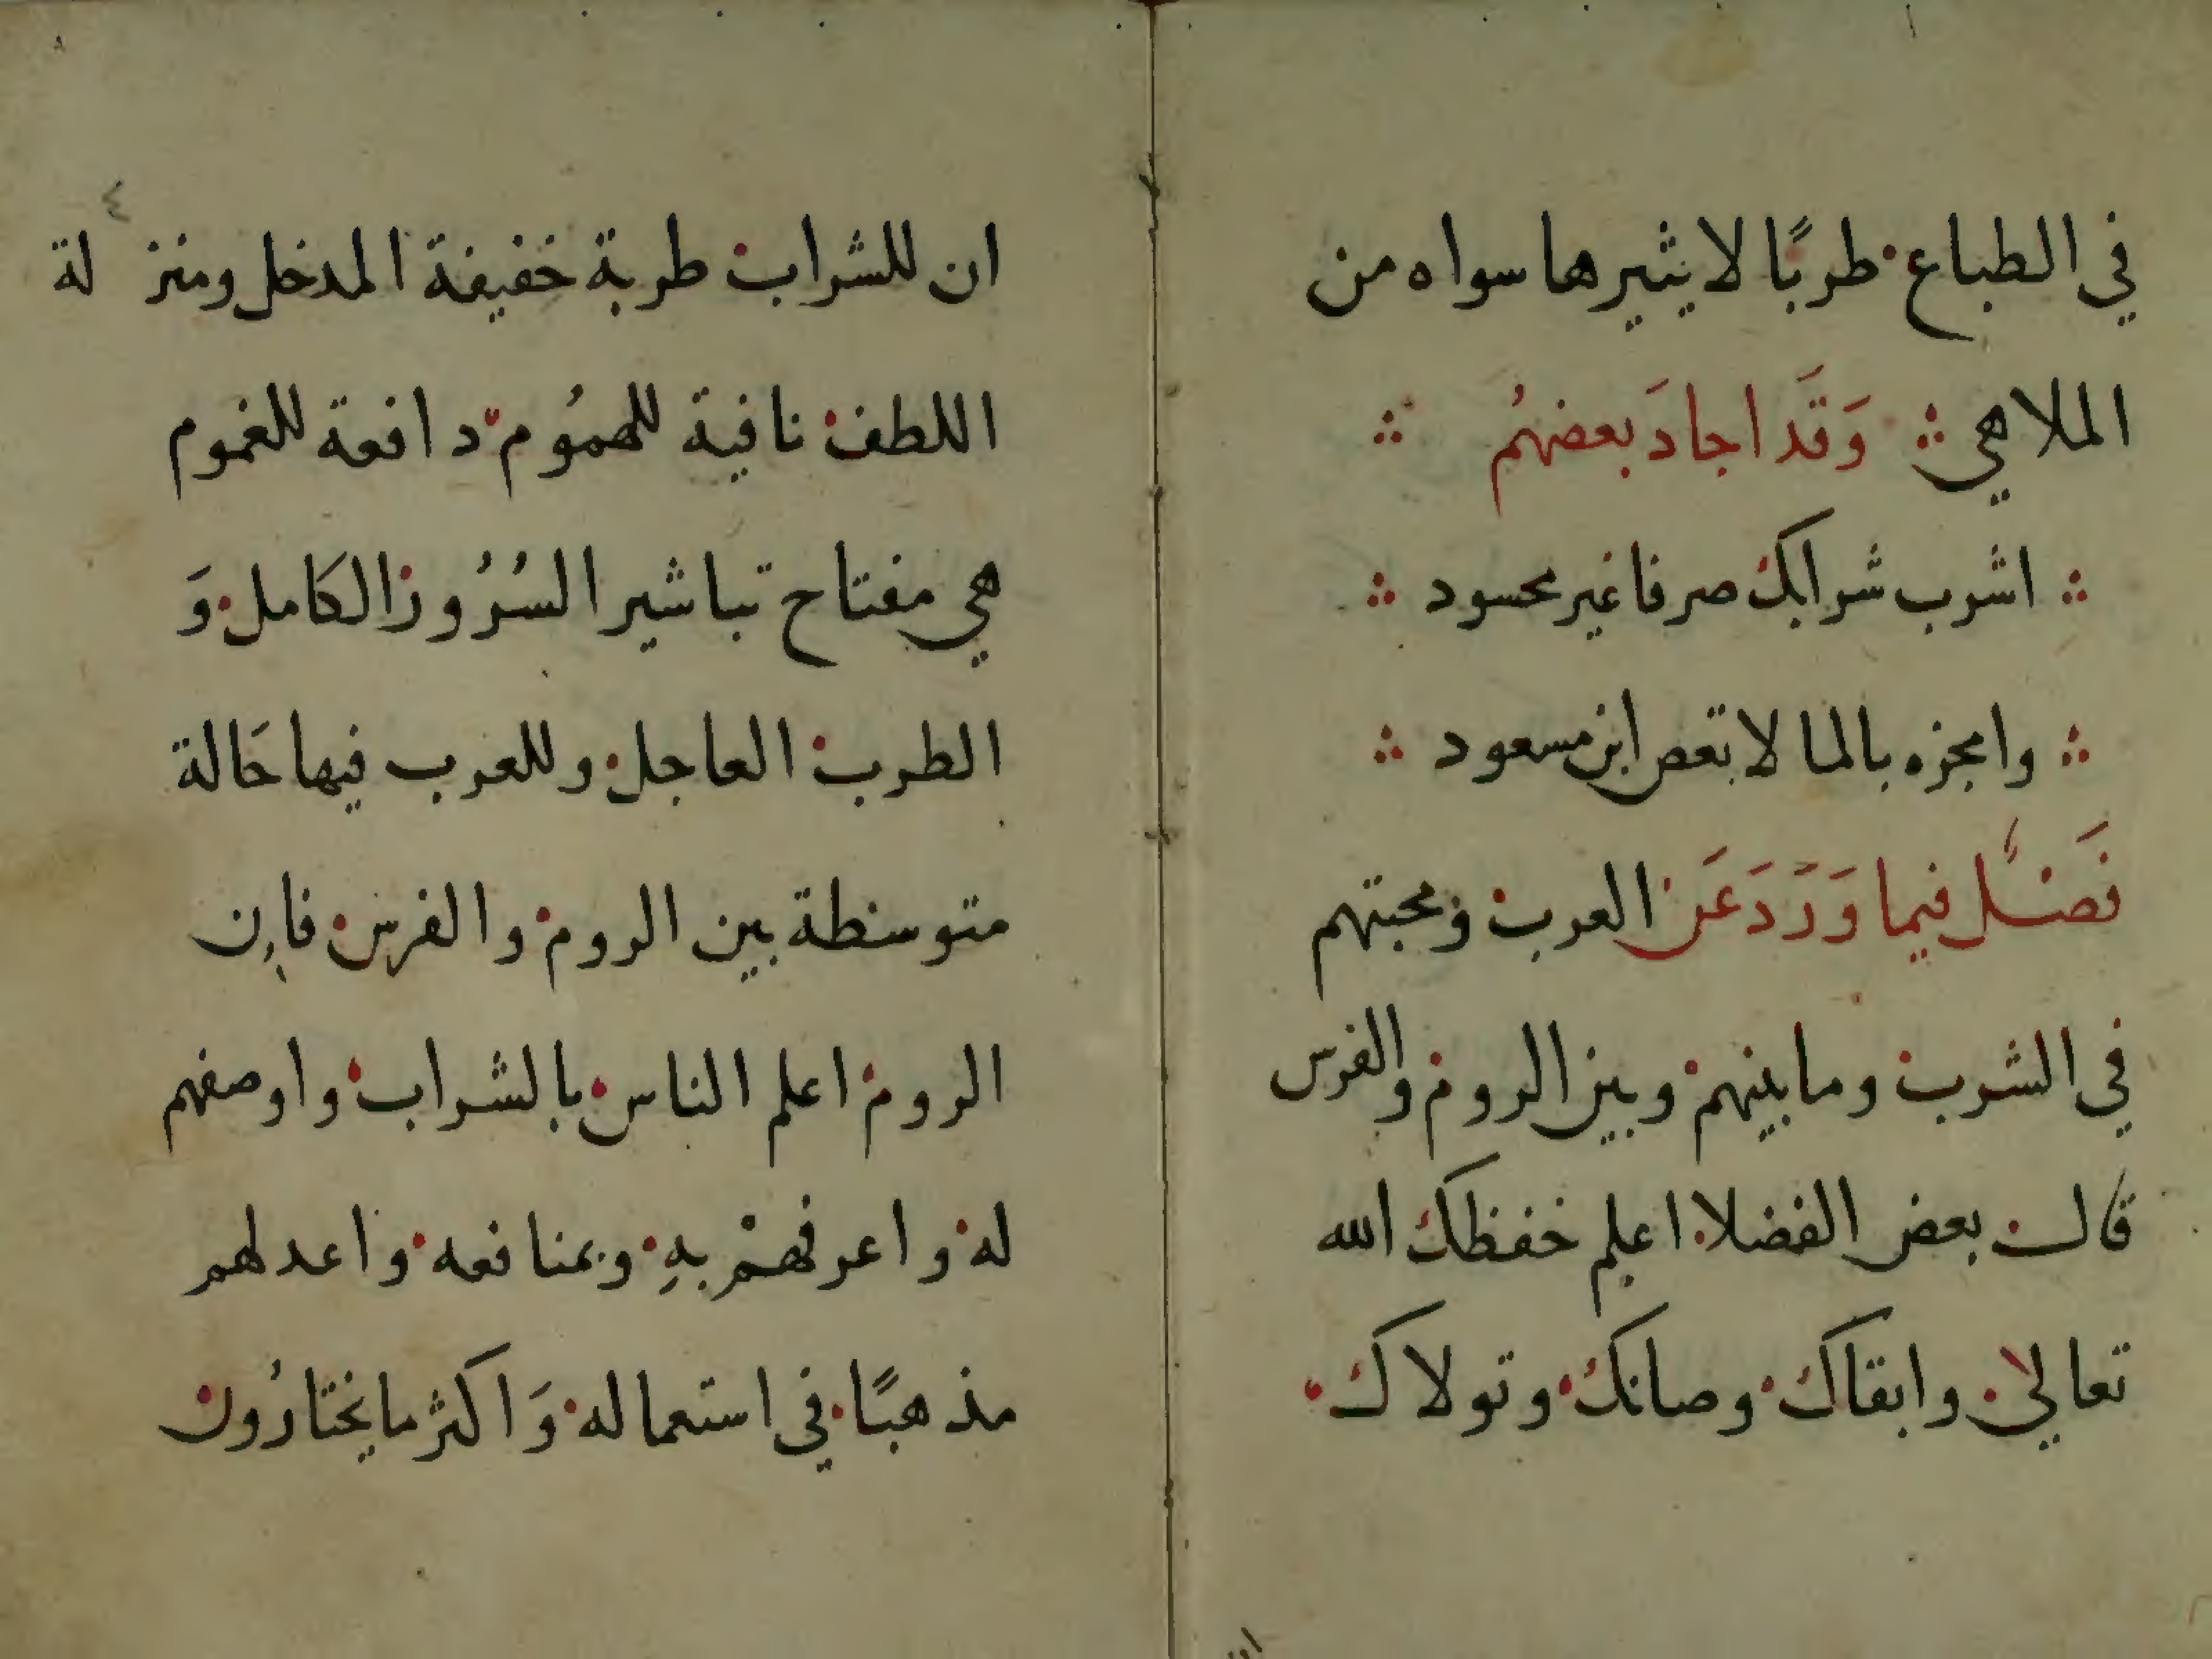 في الطباع طربًا لا يثيرها سواه من
الملاهي وَقَد اجادَ بعضهُم
اشرب شرابك صرفا غير محسود
وامجزه بالما لا بعص ابن مسعود
فَصْل فيما وَرَدَ عَن العرب ومحبتهم
في الشرب وما بينهم وبين الروم والفرس
قالـ بعض الفضلا اعلم حفظك الله
تعالي وابقاك وصانك وتولاك
ان
٤
ان للشراب طربة خفيفة المدخل ومنزلة
اللطف نافية للهمُوم دافعة للغموم
هي مفتاح تباشير السُرُور الكامل وَ
الطرب العاجل وللعرب فيها حَالة
متوسطة بين الروم والفرس فإن
الروم اعلم الناس بالشراب واوصفهم
له واعرفهم بهِ وبمنافعه واعدلهم
مذهبًا في استعماله وَاكثر ما يختارُون